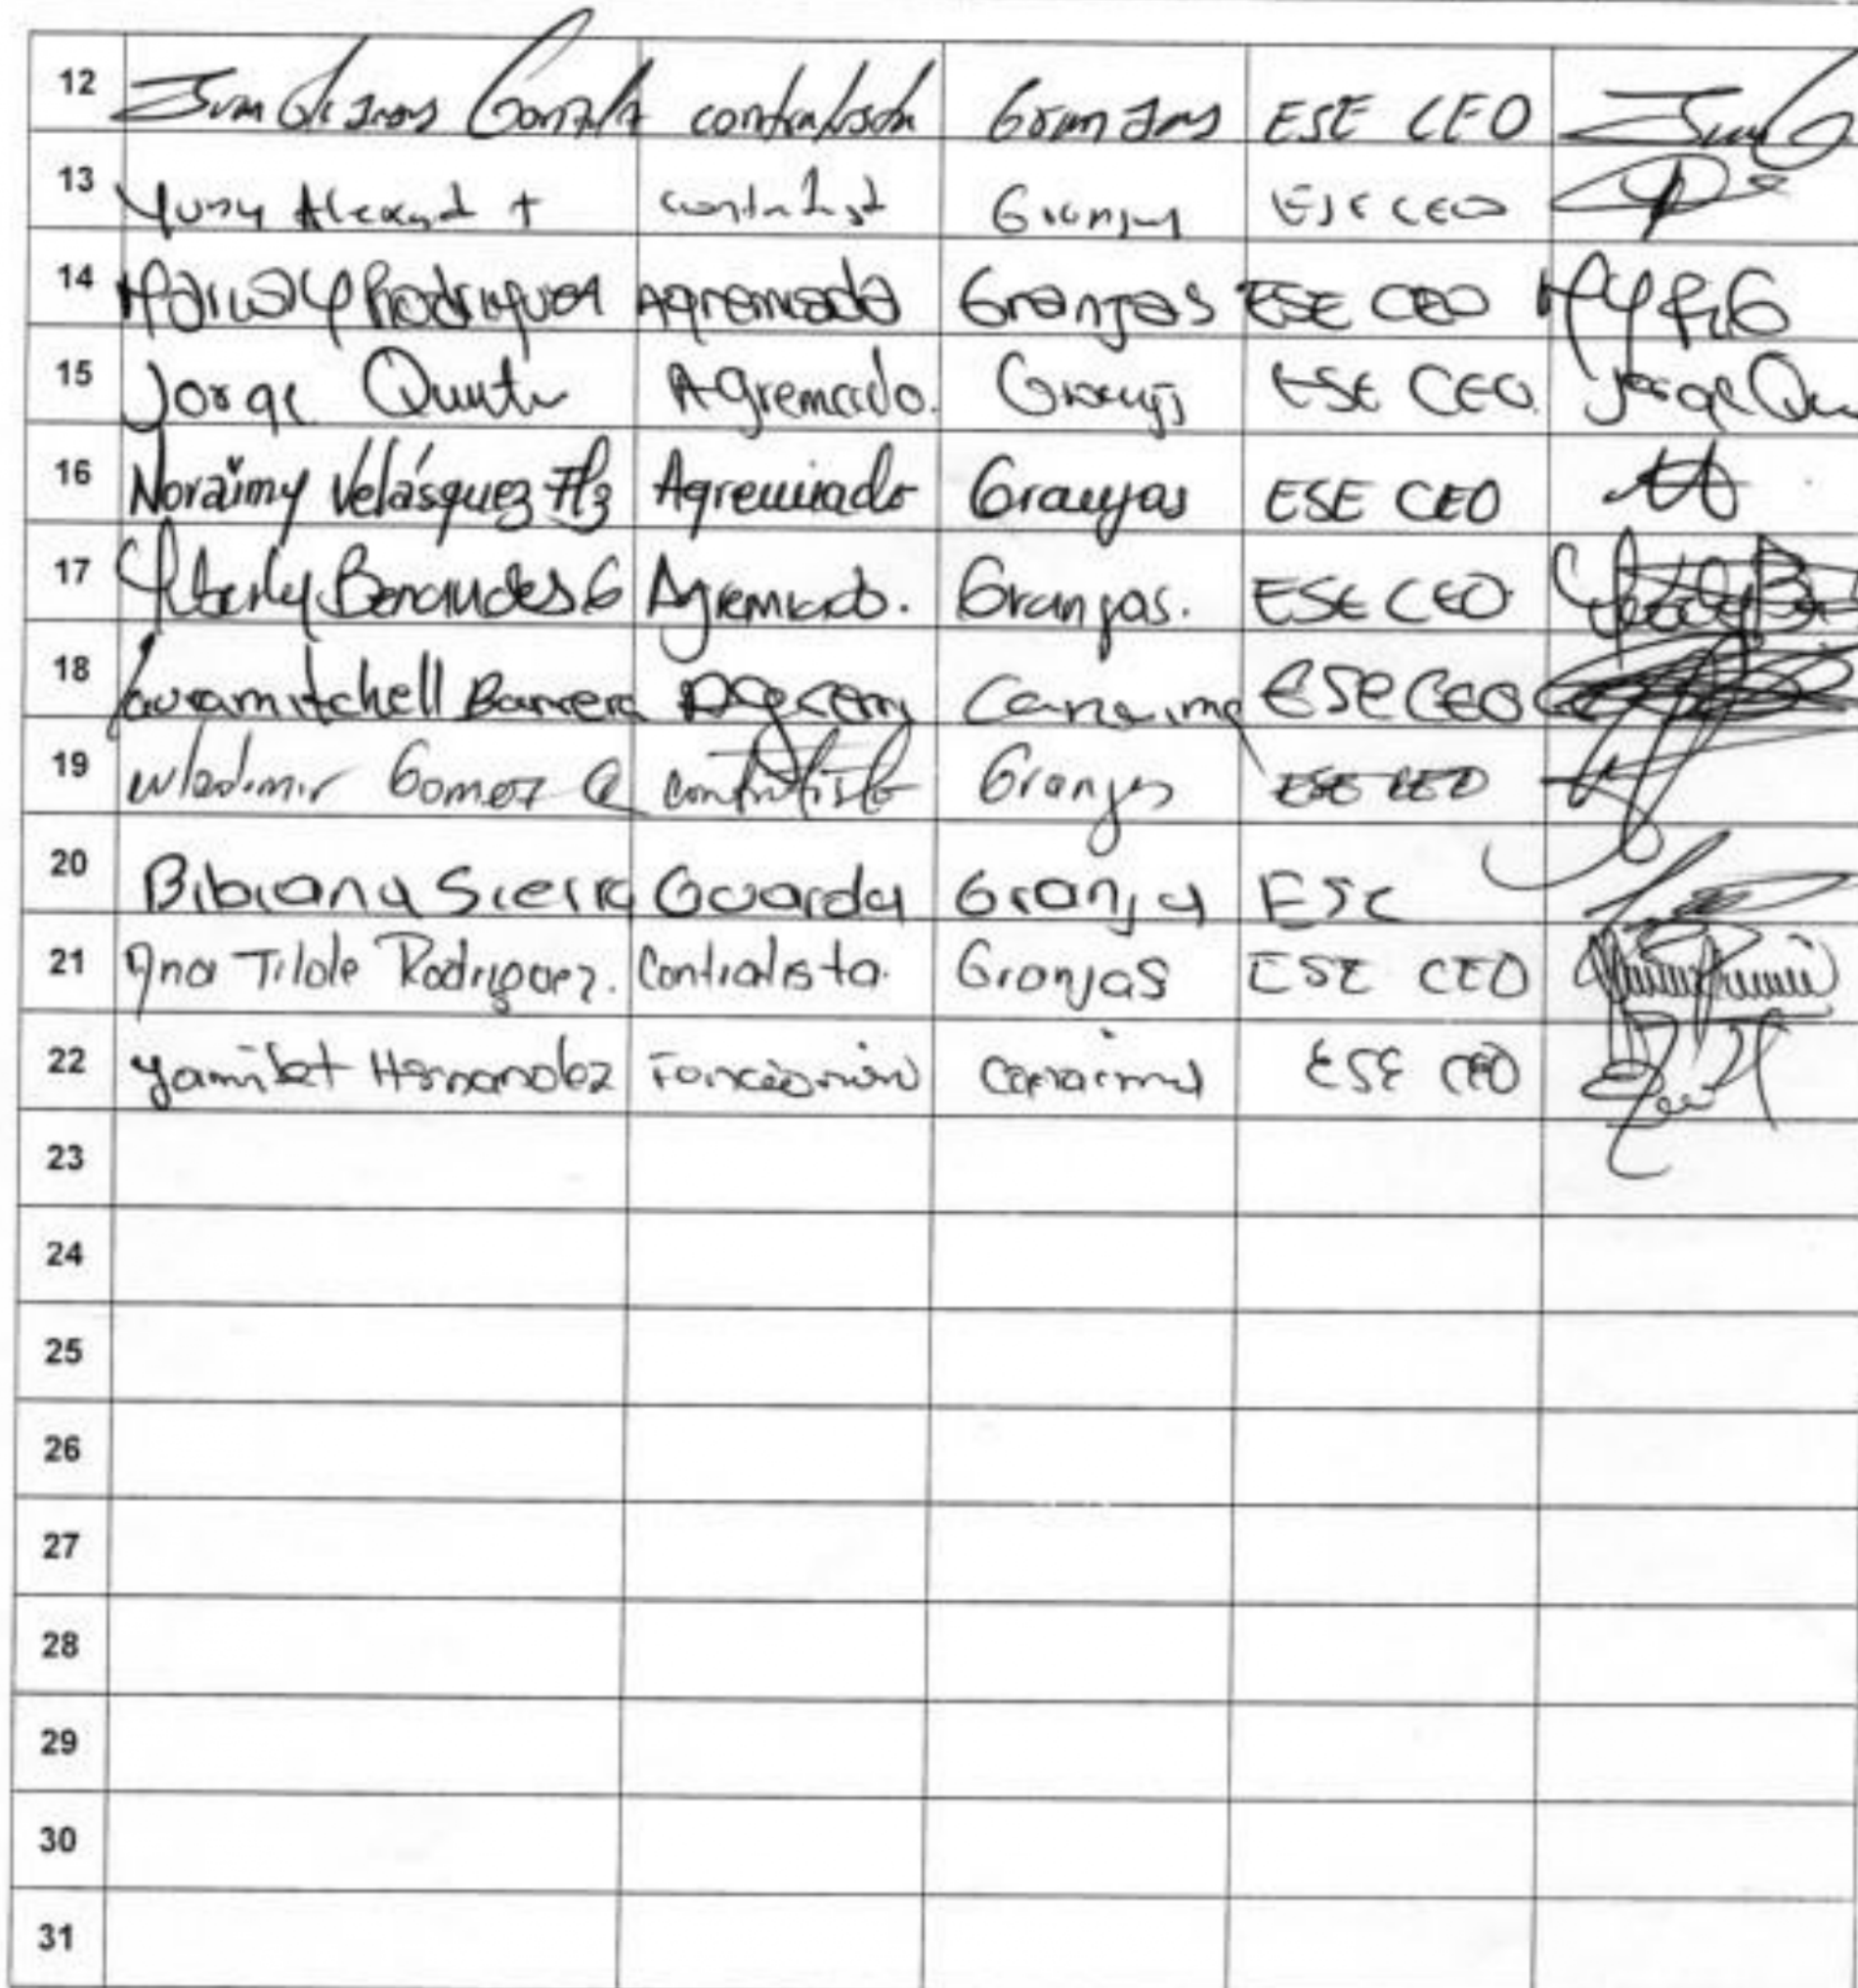 12 Gonzalez contratista Granjas ESE CEO
13 Yury Alexand + contratist Granjas ESE CEO
14 Rodriguez Agremiado Granjas ESE CEO
15 Jorge Agremiado. Granjas ESE CEO Jorge
16 Noraimy Velásquez Agremiado Granjas ESE CEO
17 Agremiado. Granjas. ESE CEO
18 Lauramitchell Barrera Canaima ESE CEO
19 Wladimir Gomez contratista Granjas ESE CEO
20 Bibiana Sierra Guarda Granja ESE
21 Ana Tilde Rodriguez. Contratista. Granjas ESE CEO
22 Yamilet Hernandez Canaima ESE CEO
23
24
25
26
27
28
29
30
31